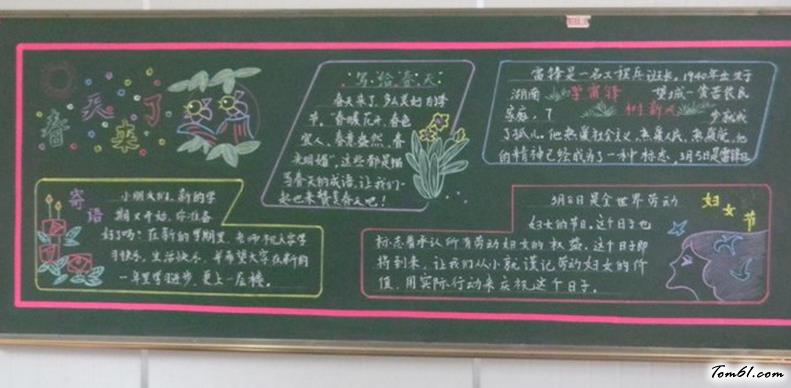 春天来了
寄语
小朋友们，新的学
期又开始，你准备
好了吗？在新的学期里，老师祝大家学
习快乐，生活快乐，并希望大家在新的
一年里学习进步，更上一层楼。
写给春天
春天来了，多么美好的季
节，“春暖花开，春色
宜人，春意盎然，春
光明媚”，这些都是描
写春天的成语，让我们一
起也来赞美春天吧！
雷锋是一名工程兵班长。1940年出生于
湖南 学雷锋 望城一贫苦农民
家庭， 树新风 岁就成
了孤儿。他热爱社会主义，热爱人民，热爱党，他
的精神已经成为了一种标志。3月5日是雷锋日
妇女节
3月8日是全世界劳动
妇女的节日。这个日子也
标志着承认所有劳动妇女的权益。这个日子即
将到来，让我们从小就谨记劳动妇女的价
值，用实际行动来庆祝这个日子。
Tom61.com